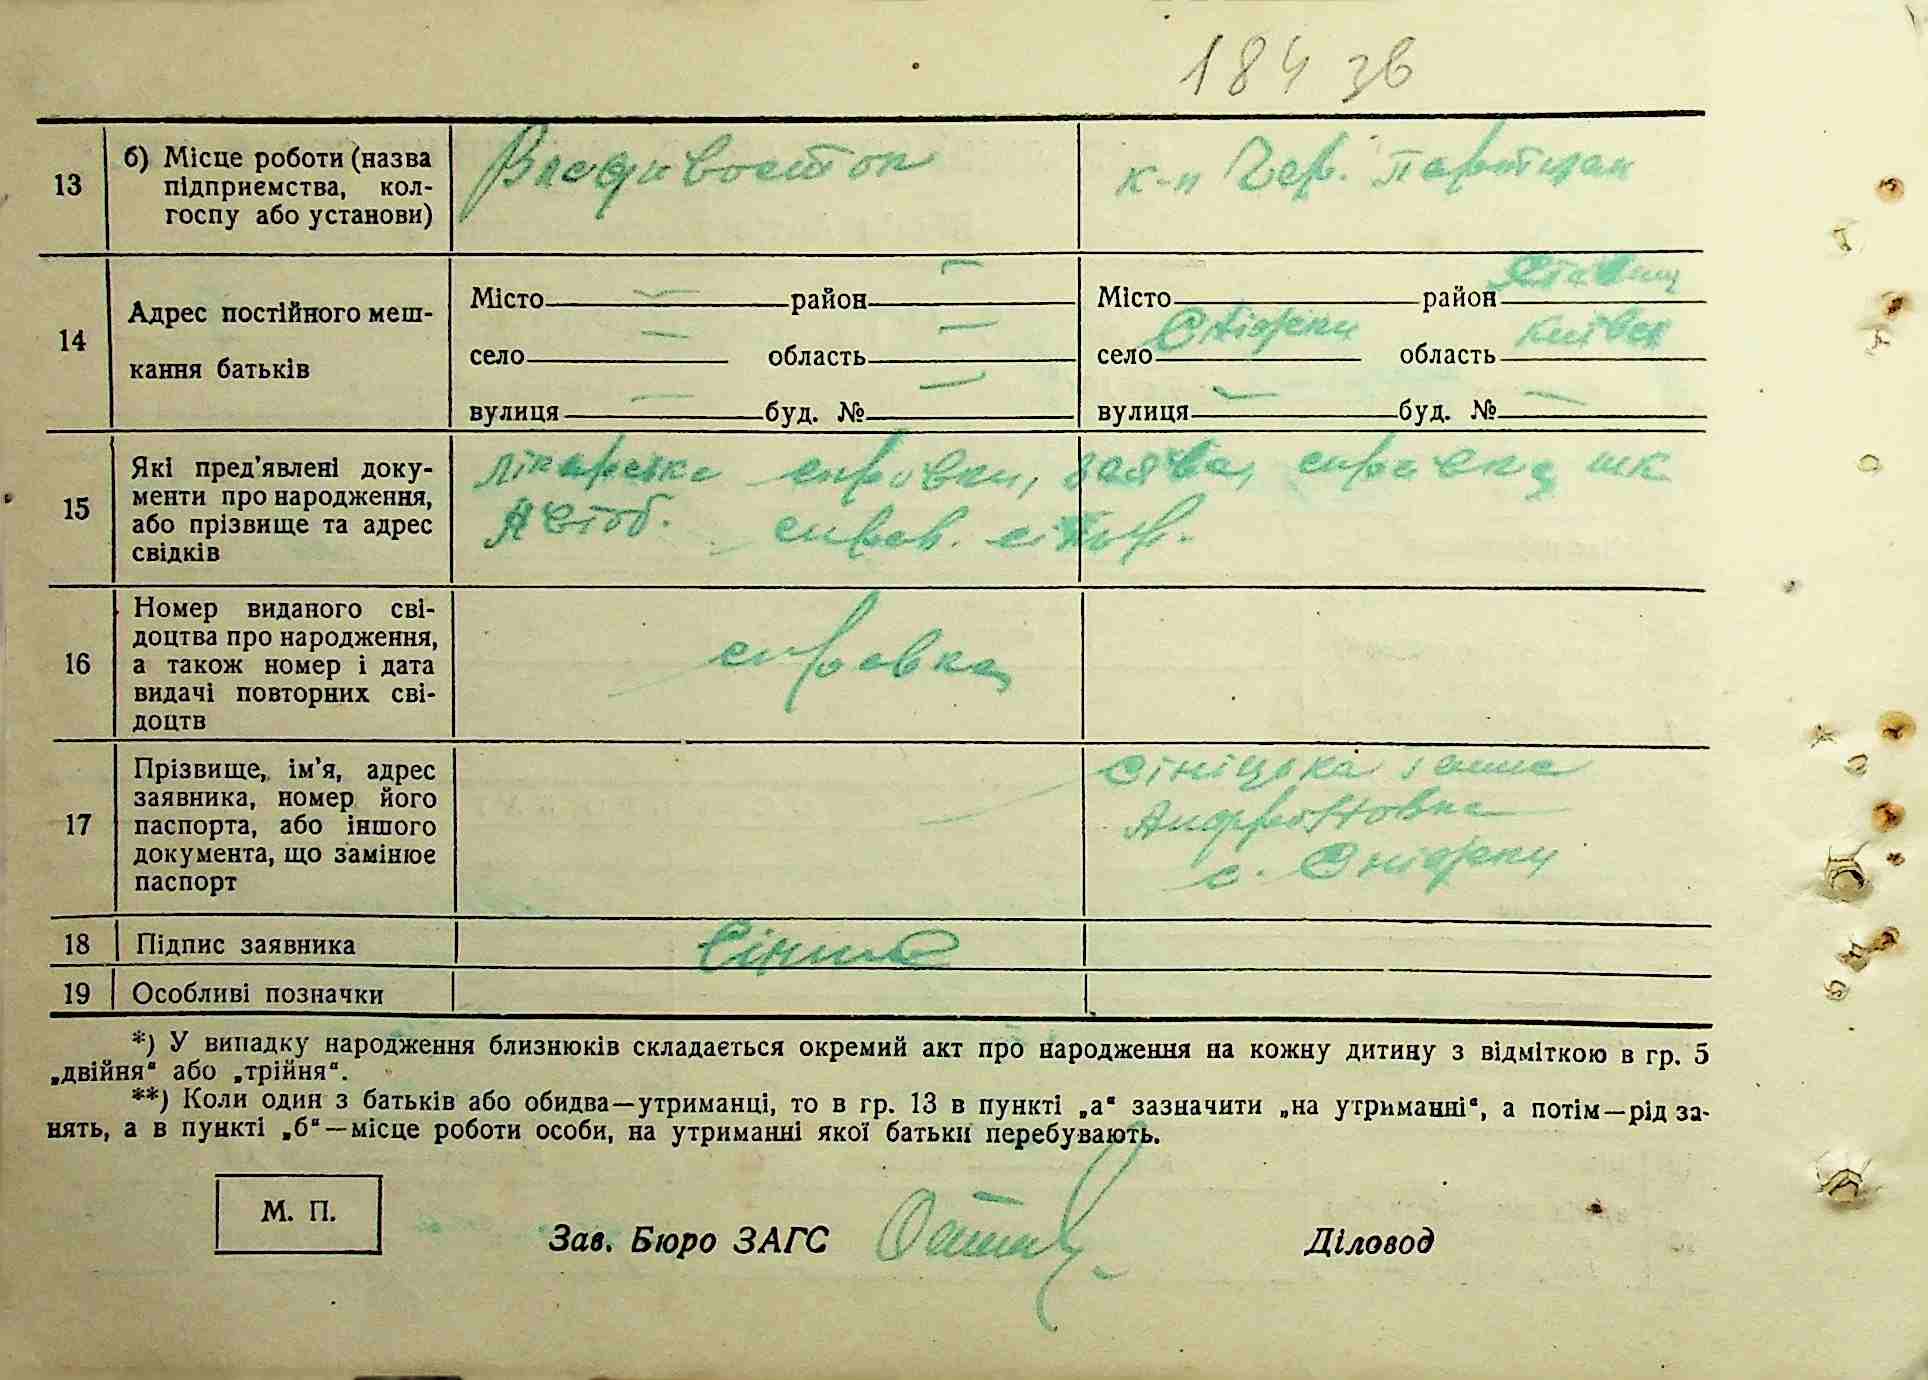 184 зв
13
б) Місце роботи (назва
підприємства, кол-
госпу або установи)
Владивосток
к-п Чер. партизан
14
Адрес постійного меш-
кання батьків
Місто — район —
село — область —
вулиця — буд. № —
Місто район Ставищ
село Сніжки область Київськ
вулиця — буд. № —
15
Які пред'явлені доку-
менти про народження,
або прізвище та адрес
свідків
лікарска справки, заява, справка шк
справ.
16
Номер виданого сві-
доцтва про народження,
а також номер і дата
видачі повторних сві-
доцтв
справка
17
Прізвище, ім'я, адрес
заявника, номер його
паспорта, або іншого
документа, що замінює
паспорт
Сініцька Ганна
Андроновна
с. Сніжки
18
Підпис заявника
19
Особливі позначки
*) У випадку народження близнюків складається окремий акт про народження на кожну дитину з відміткою в гр. 5
„двійня“ або „трійня“.
**) Коли один з батьків або обидва—утриманці, то в гр. 13 в пункті „а“ зазначити „на утриманні“, а потім—рід за-
нять, а в пункті „б“—місце роботи особи, на утриманні якої батьки перебувають.
М. П.
Зав. Бюро ЗАГС
Діловод